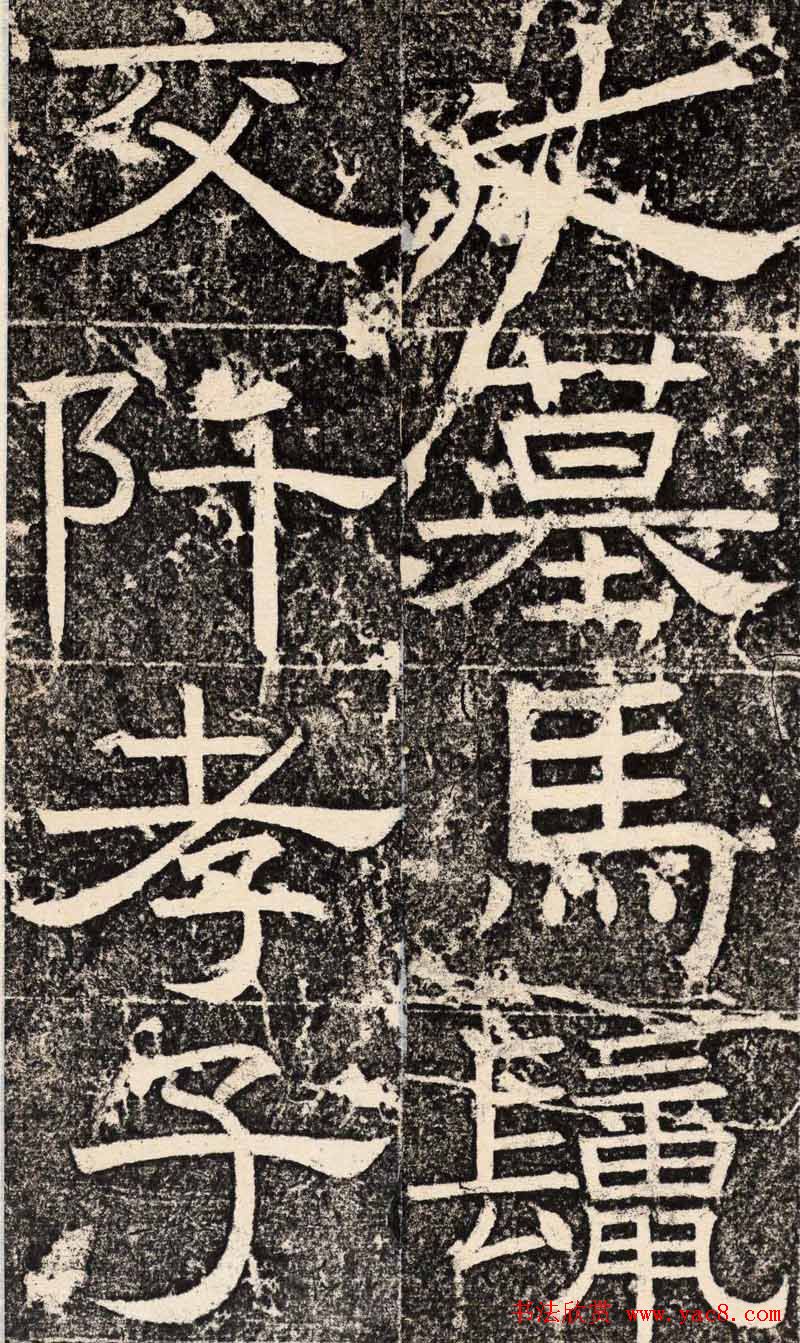 大墓馬鬣
交阡孝子
书法欣赏 www.yac8.com